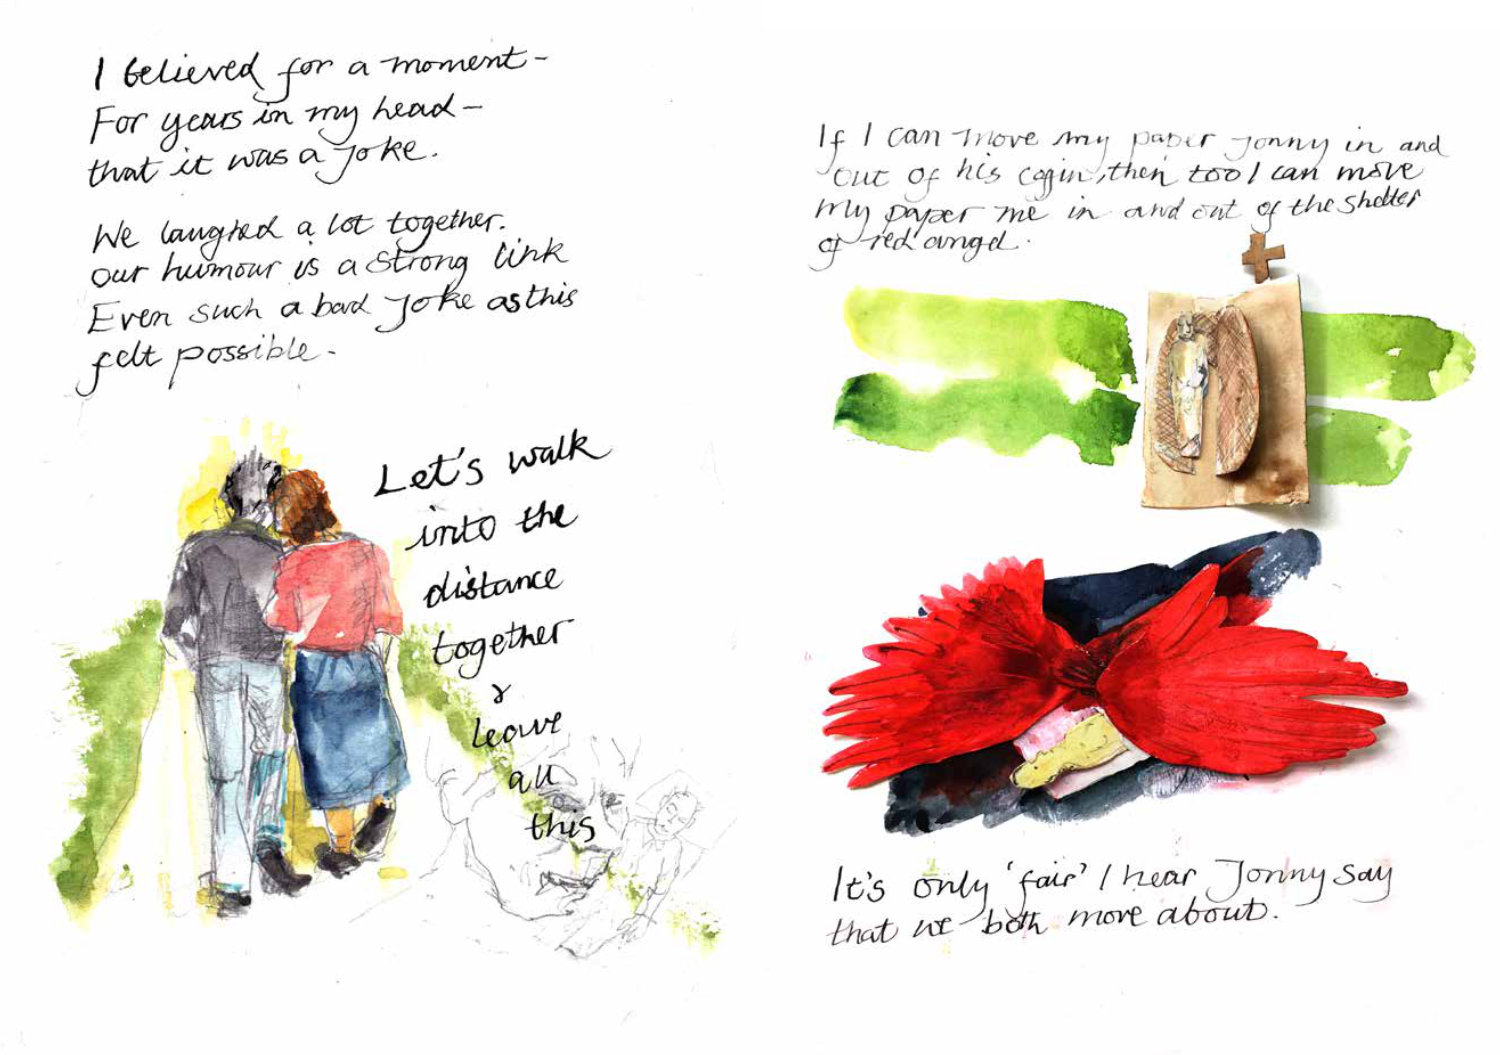 I believed for a moment –
For years in my head –
that it was a joke.
We laughed a lot together.
our humour is a strong link
Even such a bad joke as this
felt possible.
Let's walk
into the
distance
together
&
leave
all
this
If I can move my paper Jonny in and
out of his coffin, then too I can move
my paper me in and out of the shelter
of red angel.
It's only 'fair' I hear Jonny say
that we both move about.